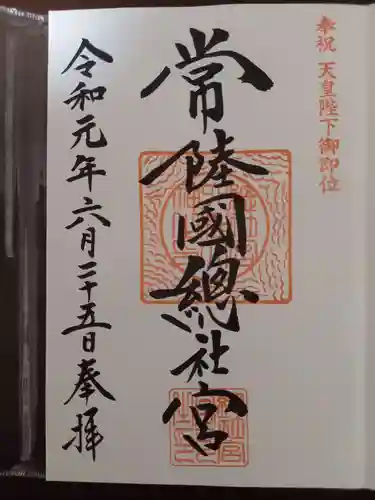 奉祝 天皇陛下御即位
常陸國總社宮
令和元年六月二十五日奉拝